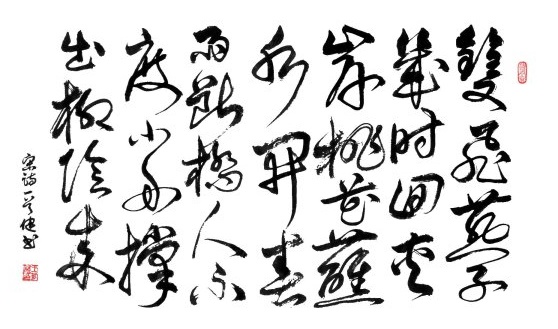 雙飛燕子
幾时回夾
岸桃花蘸
水開春
雨斷橋人不
度小舟撐
出柳陰來
宋詩一首健书